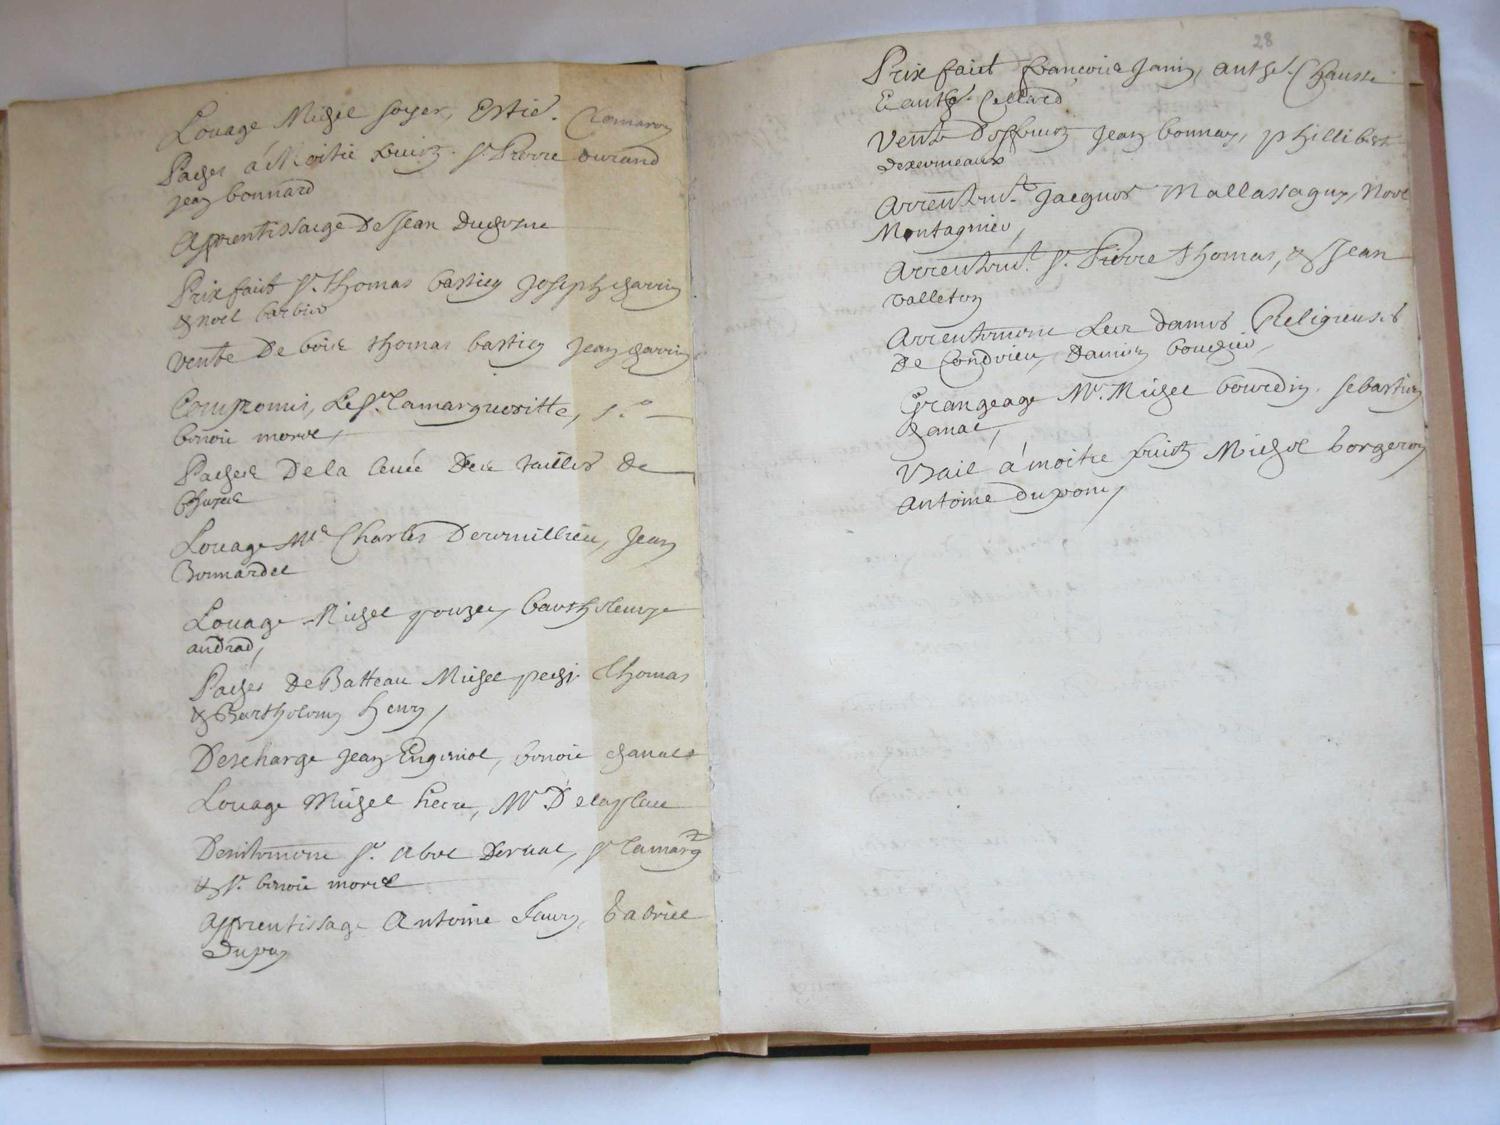 Louage Michel soyer, Estie. Clomaron
Paches à Moitie fruictz. Sr. Pierre durand
Jean bonnard
Apprentissaige De Jean
Prix fait Sr. thomas bastien Joseph garrin
& noel barbier
vente De bois thomas bastien Jean garrin
Compromis, Le Sr. Lamargueritte, Sr.
benoit morel,
Paches De la levée Des tailles De
Louage Mre Charles Deurmillieu, Jean
Bonnardel
Louage Michel pouzer, barthelemye
andrad,
Paches De Batteau Michel pechi Thomas
& Barthelemy henry,
Descharge Jean Enginiol, benoit chanal
Louage Michel heire, Mr. Delaplace
Desistement Sr. Abel Deruat, Sr Lamarg
& Sr. benoit morel
Apprentissage Antoine faury, Gabriel
Dupuy
28
Prix fait francois Janin, anthe. Chausse
& anthe. Gellard
Vente D'offices Jean bonnay, phillibert
desormeaux
Arrentemt. Jacques Mallassagny, Noel
Montagnier,
Arrentemt. Sr. Pierre thomas, & Jean
valleton
Arrentement Les dames Religieuses
De Condrieu, Damien bougier,
Grangeage Mr. Michel bourdin. sebastien
ganat,
Bail à moitie fruitz Michel borgeron
Antoine dupont,